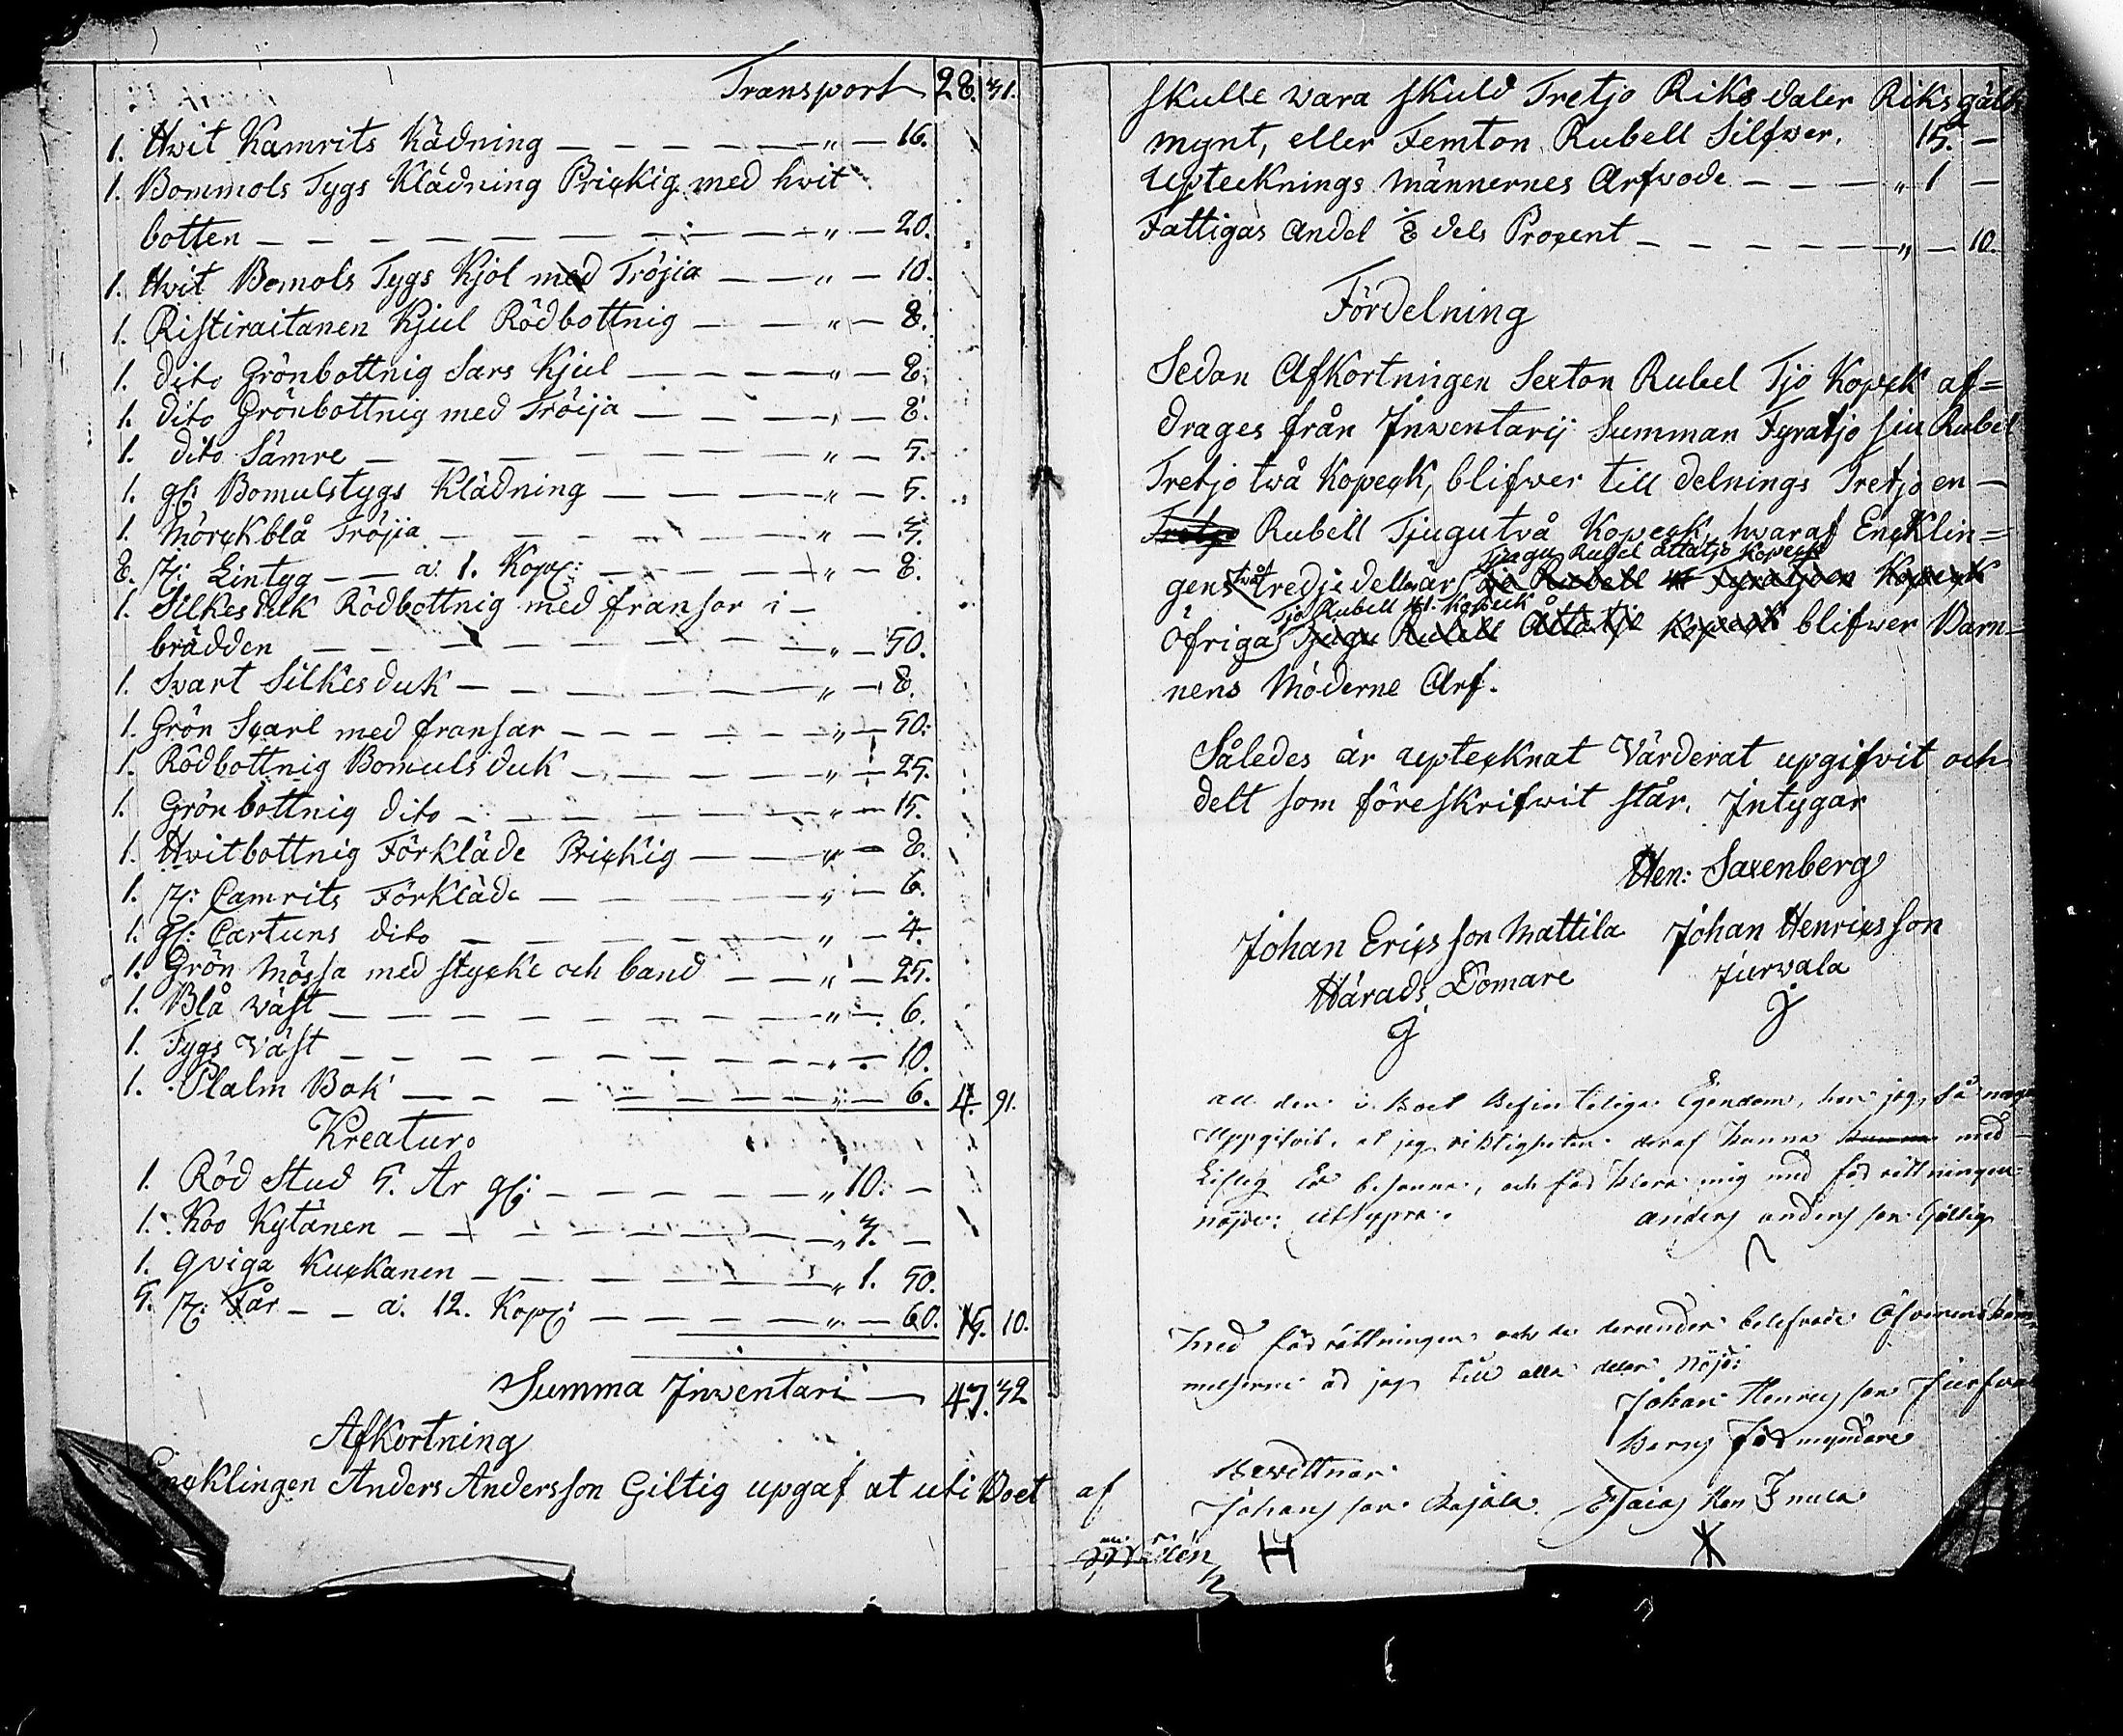 Transport 28. 31.
1. Hvit Kamrits Kädning — — — — — " — 16.
1. Bommols Tygs Klädning Prickig med hvit
botten — — — — — — — — — " — 20.
1. Hvit Bomols Tygs Kjol med Tröjia — — " — 10.
1. Ristiraitanen Kjul Rödbottnig — — " — 8.
1. dito Grönbottnig Sars Kjul — — — — " — 8.
1. dito Grönbottnig med Tröija — — — " — 8.
1. dito Sämre — — — — — — — " — 5.
1. gl: Bomulstygs Klädning — — — — " — 5.
1. Mörckblå Tröjia — — — — — — " — 3.
8. st: Lintyg — — a. 1. Kop: — — — — " — 8.
1. Silkesduk Rödbottnig med fransor i —
brädden — — — — — — — — " — 50.
1. Svart Silkesduk — — — — — — " — 8.
1. Grön Scarl med fransar — — — — — " — 50:
1. Rödbottnig Bomulsduk — — — — — " — 25.
1. Grönbottnig dito — — — — — — " — 15.
1. Hvitbottnig Förkläde Prickig — — " — 8.
1. st: Camrits Förkläde — — — — — " — 6.
1. gl: Cartuns dito — — — — — — " — 4.
1. Grön Mössa med stycke och band — — " — 25.
1. Blå Väst — — — — — — — — " — 6.
1. Tygs Väst — — — — — — — — " — 10.
1. Psalm Bok — — — — — — — — " — 6. 4. 91.
Kreatur.
1. Röd Stud 5. År gl: — — — — — " 10. —
1. Koo Kytänen — — — — — — — " 3. —
1. Qviga Kuckanen — — — — — — " 1. 50.
5. st: Får — — a. 12. Kop: — — — — " — 60. 15. 10.
Summa Inwentari — 47. 32
Afkortning
Encklingen Anders Andersson Giltig upgaf at uti Boet
skulle wara skuld Tretjo Riks daler Riksgälts
mynt, eller Femton Rubell Silfwer. 15. —
Uptecknings Männernes Arfwode — — — " 1 —
Fattigas Andel ⅛ dels Procent — — — — — " — 10.
Fördelning
Sedan Afkortningen Sexton Rubel Tjo Kopeck af=
drages från Inwentarij Summan Fyratjo siu Rubel
Tretjo två Kopeck, blifwer till delnings Tretjo en —
Tretjo Rubell Tjugutvå Kopeck, hwaraf Encklin=
Tjugu Rubel åttatjo Kopeck
gens två tredjedellar är tjo Rubell Fyratjoen Kopeck
Tjo Rubell 41. Kopeck
Öfriga Tjugu Rubell Åttatjo Kopeck blifwer Barn=
nens Möderne Arf.
Således är uptecknat Värderat upgifvit och
delt som föreskrifwit står. Intygar
Hen: Saxenberg
Johan Ericsson Mattila Johan Henricsson
Härads Domare Jurvala
all den i Boet Befinteliga Egendom, har jag så noga
Uppgifvit, at jag riktigheten deraf kanna med
Liflig Ed besanna, och förklara mig med förrättningen
nöjd: Utsupra. Anders Andersson Giltig
Med förrättningen och de derunder belefvade Öfverens kom
melserne är jag till alla delar nöjd:
Johan Henricsson Jurfvala
Barns Förmyndare
Bevittnar
af Johansson Esaias
H